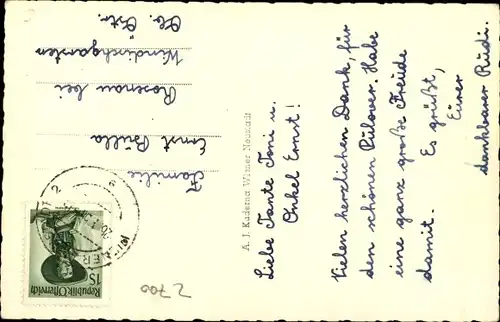 Liebe Tante Toni u.
Onkel Ernst!
Vielen herzlichen Dank, für
den schönen Pulover. Habe
eine ganz große Freude
damit.
Es grüßt,
Eurer
dankbarer Rudi.
A. J. Kaderna Wiener Neustadt
Familie
Ernst Bülla
Rosenau bei
Windischgarsten
Ob. Östr.
Republik Österreich
1S
2700